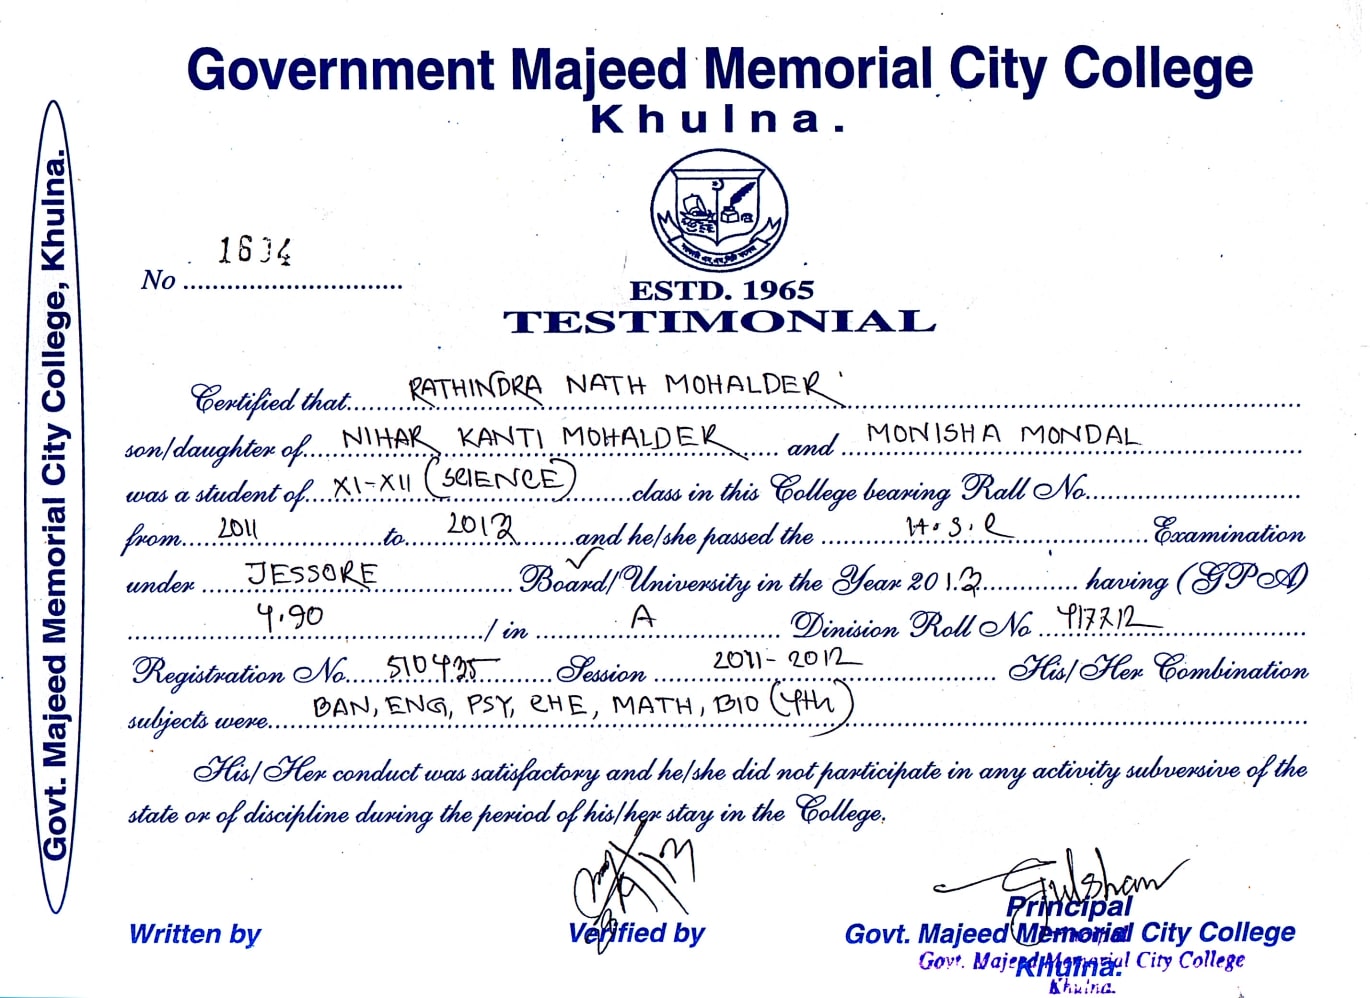 Government Majeed Memorial City College
Khulna.
Govt. Majeed Memorial City College, Khulna.
No ..............................
ESTD. 1965
TESTIMONIAL
Certified that RATHINDRA NATH MOHALDER
son/daughter of NIHAR KANTI MOHALDER and MONISHA MONDAL
was a student of XI-XII (SCIENCE) class in this College bearing Rall No.
from 2011 to 2012 and he/she passed the H.S.C Examination
under JESSORE Board/University in the Year 2012 having (GPA)
4.90 / in A Dinision Roll No 417212
Registration No. 510435 Session 2011-2012 His/Her Combination
subjects were BAN, ENG, PSY, CHE, MATH, BIO (4th)
His/Her conduct was satisfactory and he/she did not participate in any activity subversive of the
state or of discipline during the period of his/her stay in the College.
Gulshan
Written by Verified by Principal
Govt. Majeed Memorial City College
Khulna.
Govt. Majeed Memorial City College
Khulna.